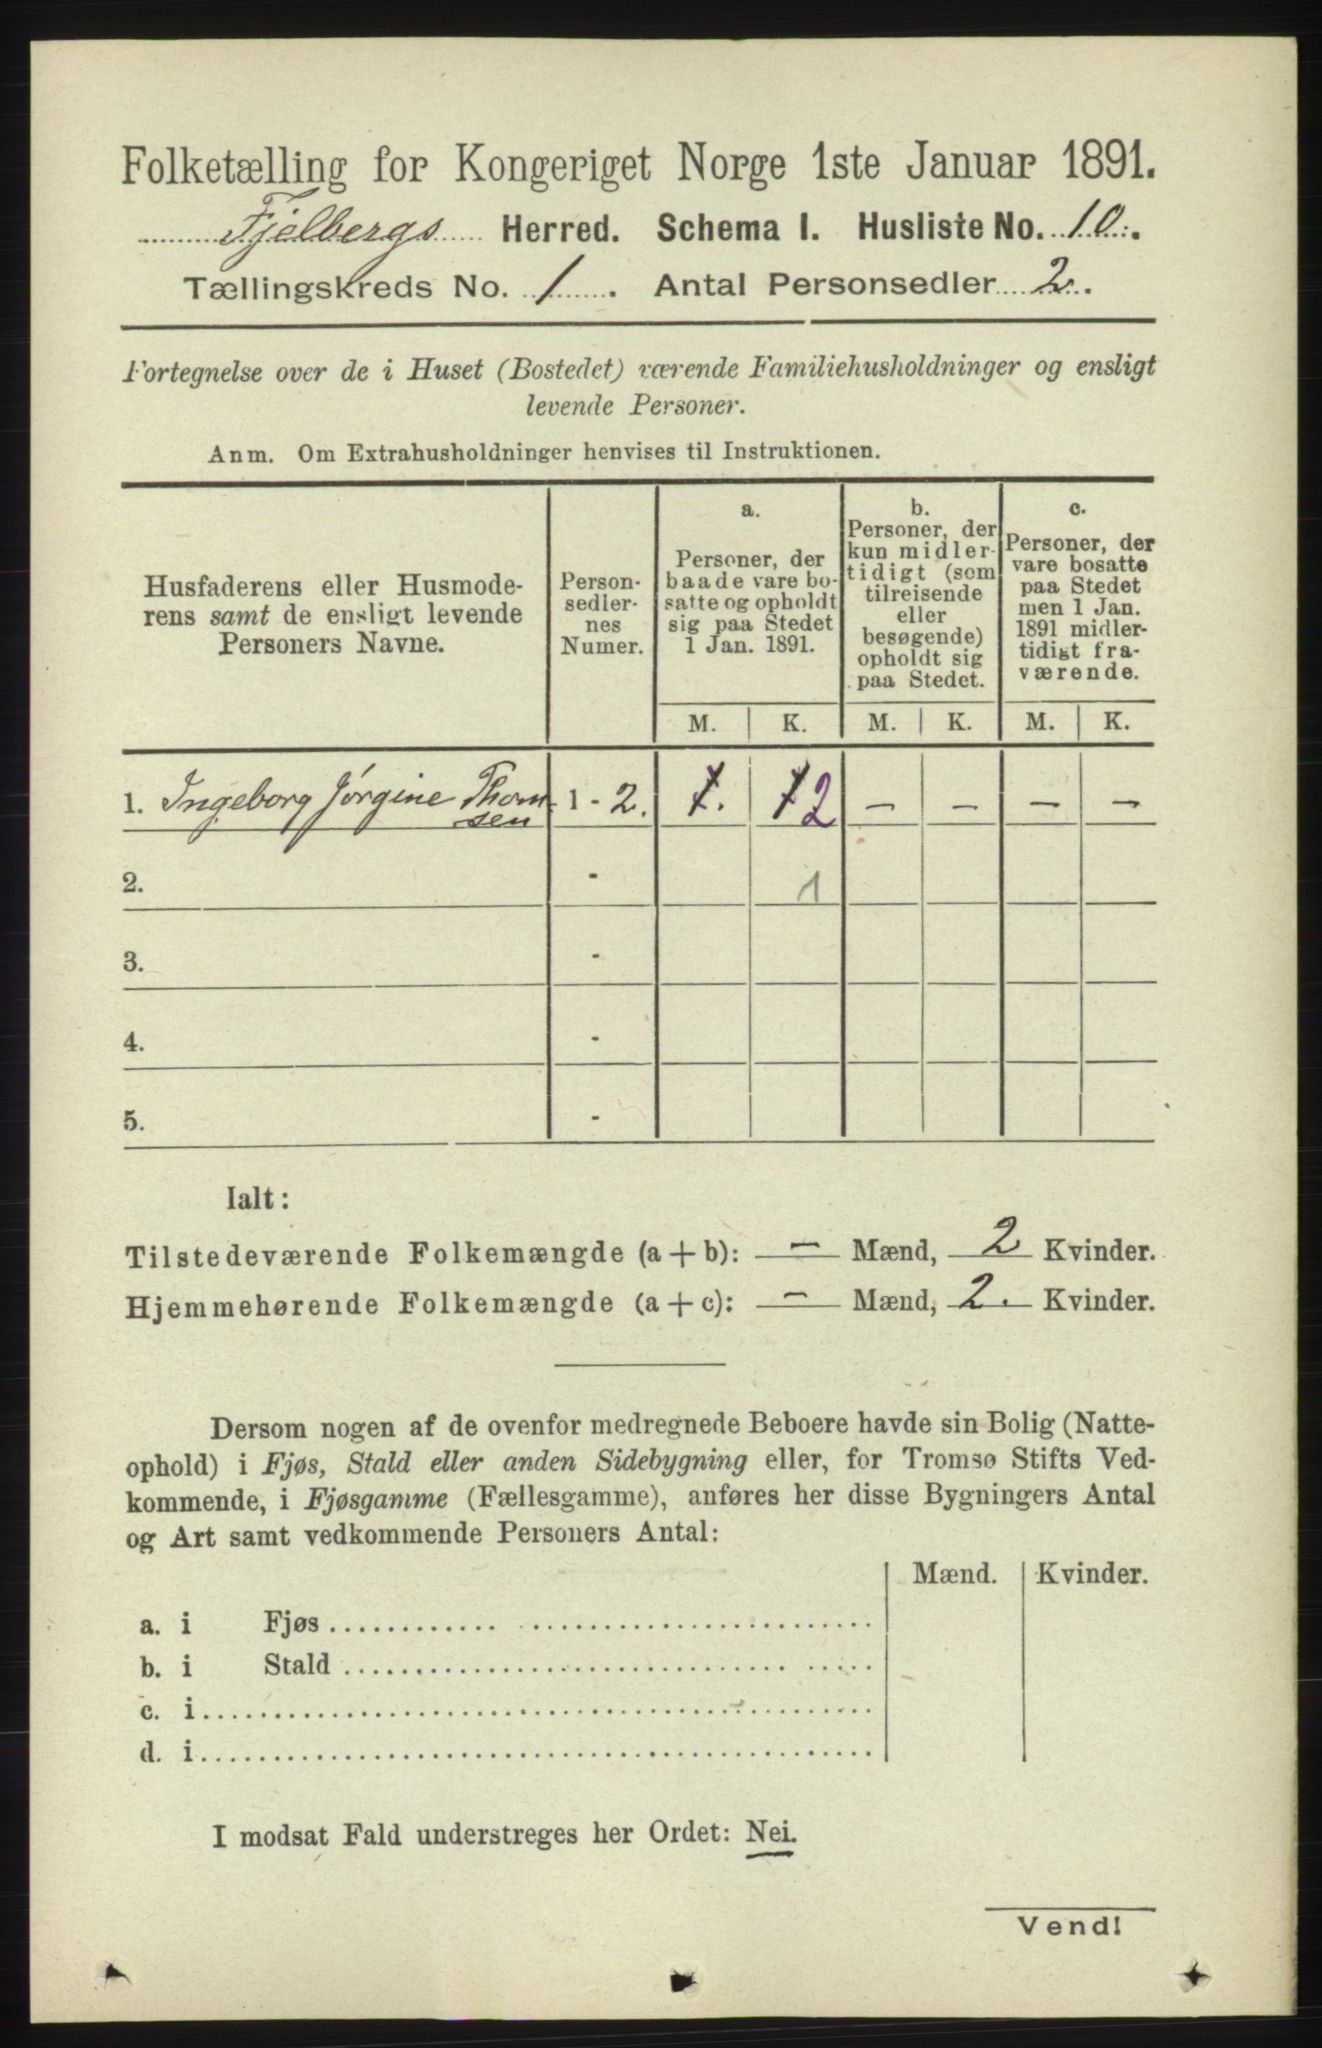 Folketælling for Kongeriget Norge 1ste Januar 1891.
Fjelbergs Herred. Schema I. Husliste No. 10.
Tællingskreds No. 1. Antal Personsedler 2.
Fortegnelse over de i Huset (Bostedet) værende Familiehusholdninger og ensligt
levende Personer.
Anm. Om Extrahusholdninger henvises til Instruktionen.
Husfaderens eller Husmode-
rens samt de ensligt levende
Personers Navne.
Person-
sedler-
nes
Numer.
a.
Personer, der
baade vare bo-
satte og opholdt
sig paa Stedet
1 Jan. 1891.
b.
Personer, der
kun midler-
tidigt (som
tilreisende
eller
besøgende)
opholdt sig
paa Stedet.
c.
Personer, der
vare bosatte
paa Stedet
men 1 Jan.
1891 midler-
tidigt fra-
værende.
M. K. M. K. M. K.
1. Ingeborg Jørgine Thom
sen 1 - 2. 1. 1 2 - - - -
2. - 1
3. -
4. -
5. -
Ialt:
Tilstedeværende Folkemængde (a + b): - Mænd, 2 Kvinder.
Hjemmehørende Folkemængde (a + c): - Mænd, 2. Kvinder.
Dersom nogen af de ovenfor medregnede Beboere havde sin Bolig (Natte-
ophold) i Fjøs, Stald eller anden Sidebygning eller, for Tromsø Stifts Ved-
kommende, i Fjøsgamme (Fællesgamme), anføres her disse Bygningers Antal
og Art samt vedkommende Personers Antal:
Mænd. Kvinder.
a. i Fjøs
b. i Stald
c. i
d. i
I modsat Fald understreges her Ordet: Nei.
Vend!